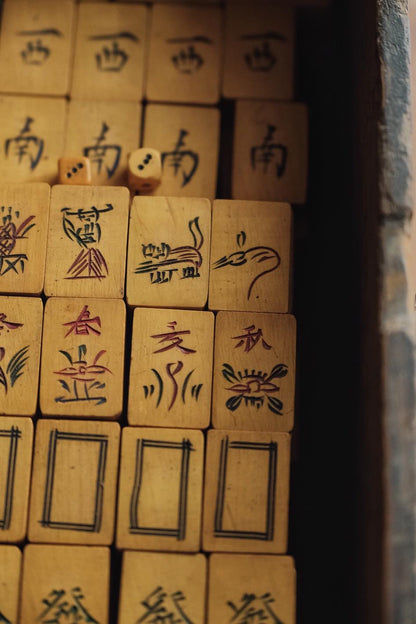 西 西 西 西
南 南 南 南
春 夏 秋
發 發 發